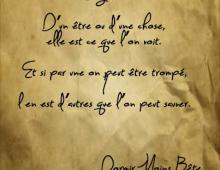 D'un être ou d'une chose,
elle est ce que l'on voit.
Et si par une on peut être trompé,
l en est d'autres que l'on peut sauver.
Dormir Moins Bête